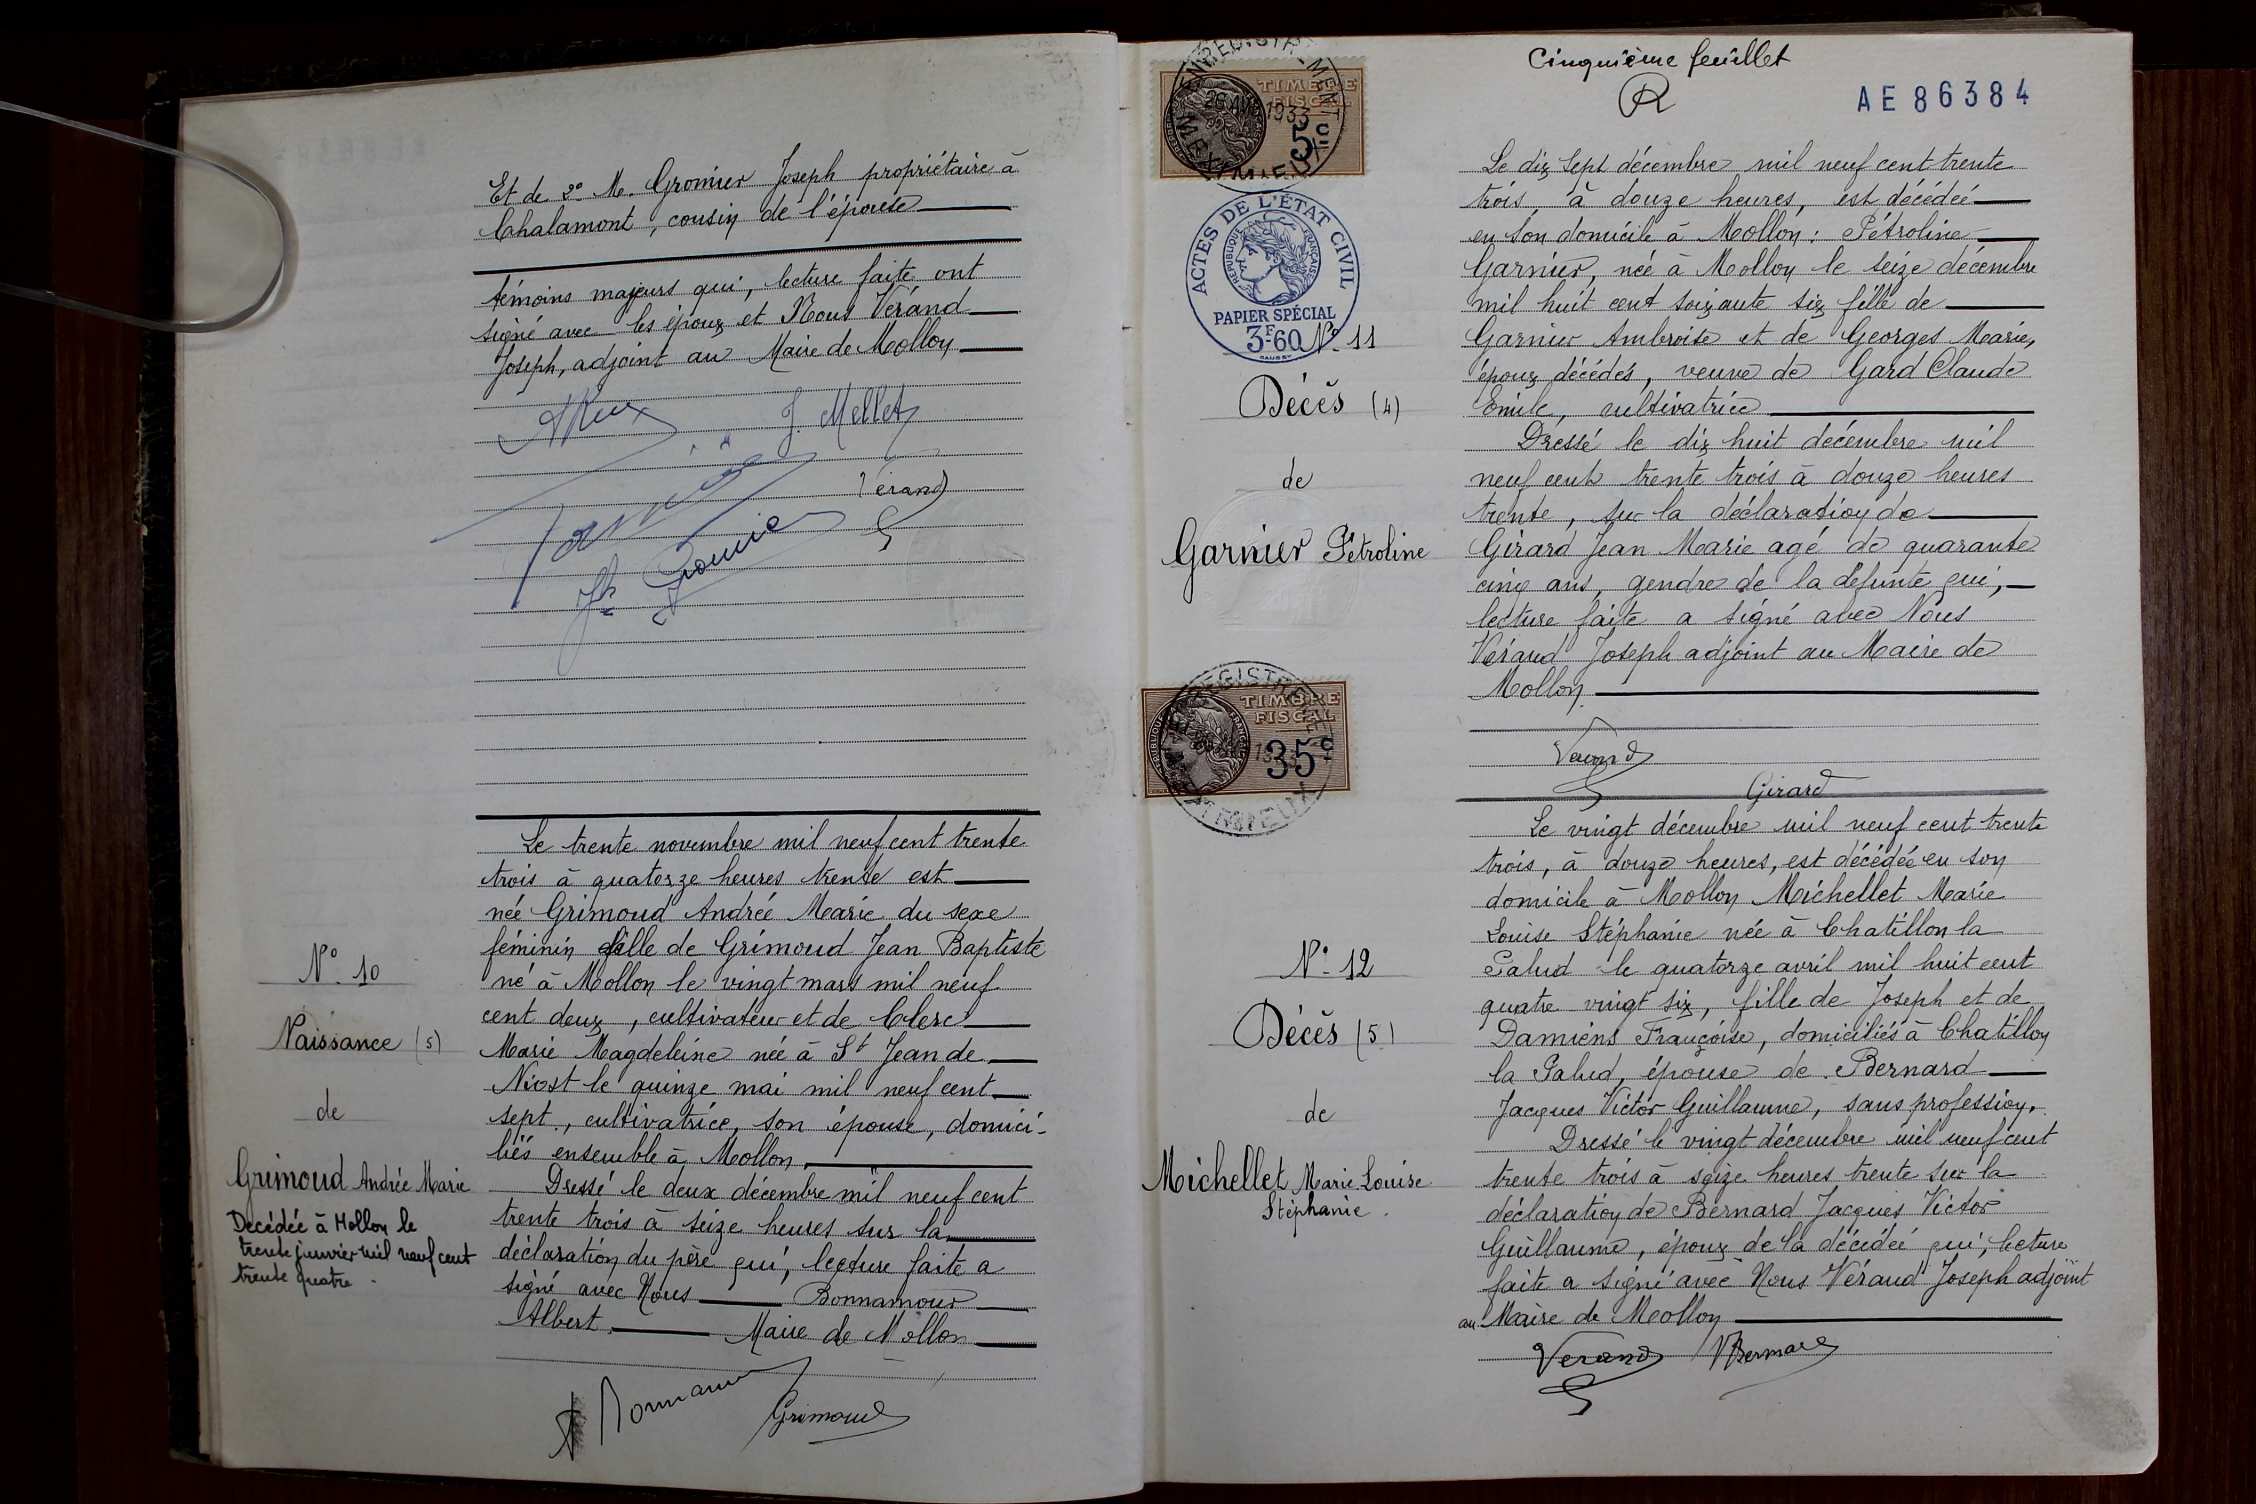 Et de 2º M. Gromier Joseph propriétaire à
Chalamont, cousin de l'épouse
témoins majeurs qui, lecture faite ont
signé avec les époux et Nous Vérand
Joseph, adjoint au Maire de Mollon
J. Mellet
Vérand
Jh Gromier
Le trente novembre mil neuf cent trente
trois à quatorze heures trente est
née Grimoud Andrée Marie du sexe
féminin fille de Grimoud Jean Baptiste
né à Mollon le vingt mars mil neuf
cent deux, cultivateur et de Clerc
Marie Magdeleine née à St Jean de
Niost le quinze mai mil neuf cent
sept, cultivatrice, son épouse, domici-
liés ensemble à Mollon
Dressé le deux décembre mil neuf cent
trente trois à seize heures sur la
déclaration du père qui, lecture faite a
signé avec Nous Bonnamour
Albert Maire de Mollon
Grimoud
Nº 10
Naissance (5)
de
Grimoud Andrée Marie
Décédée à Mollon le
trente janvier mil neuf cent
trente quatre.
Cinquième feuillet
AE 86384
ENREGISTREMENT
TIMBRE
FISCAL
1933
MEXIMIEUX
ACTES DE L'ÉTAT CIVIL
RÉPUBLIQUE FRANÇAISE
PAPIER SPÉCIAL
3F60
Nº 11
Décès (4)
de
Garnier Pétroline
Le dix sept décembre mil neuf cent trente
trois, à douze heures, est décédée
en son domicile à Mollon : Pétroline
Garnier, née à Mollon le seize décembre
mil huit cent soixante six fille de
Garnier Ambroise et de Georges Marie,
époux décédés, veuve de Gard Claude
Emile, cultivatrice
Dressé le dix huit décembre mil
neuf cent trente trois à douze heures
trente, sur la déclaration de
Girard Jean Marie agé de quarante
cinq ans, gendre de la défunte qui,
lecture faite a signé avec Nous
Vérand Joseph adjoint au Maire de
Mollon
Verand
Girard
TIMBRE
FISCAL
35c
Nº 12
Décès (5)
de
Michellet Marie Louise
Stéphanie.
Le vingt décembre mil neuf cent trente
trois, à douze heures, est décédée en son
domicile à Mollon Michellet Marie
Louise Stéphanie née à Chatillon la
Palud le quatorze avril mil huit cent
quatre vingt six, fille de Joseph et de
Damiens Françoise, domiciliés à Chatillon
la Palud, épouse de Bernard
Jacques Victor Guillaume, sans profession.
Dressé le vingt décembre mil neuf cent
trente trois à seize heures trente sur la
déclaration de Bernard Jacques Victor
Guillaume, époux de la décédée qui, lecture
faite a signé avec Nous Vérand Joseph adjoint
au Maire de Mollon
Verand VBernard